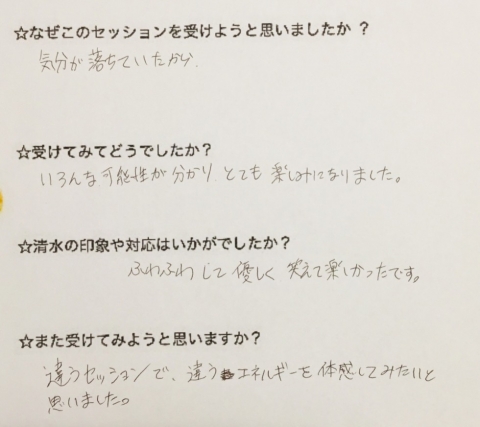 ☆なぜこのセッションを受けようと思いましたか？
気分が落ちていたから.
☆受けてみてどうでしたか？
いろんな可能性が分かり とても 楽しみになりました。
☆清水の印象や対応はいかがでしたか？
ふわふわ して 優しく 笑えて楽しかったです。
☆また受けてみようと思いますか？
違うセッションで、違うエネルギーを体感してみたいと
思いました。